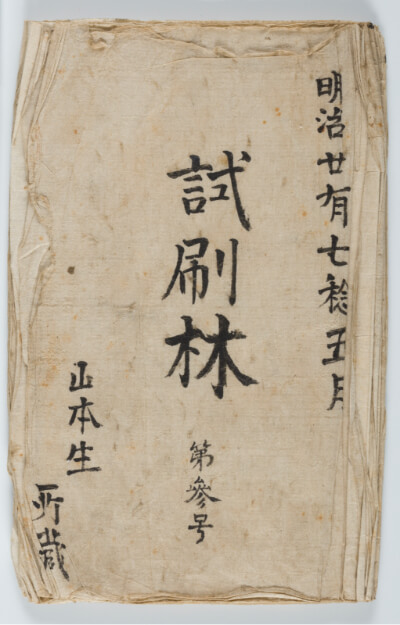 明治廿有七稔五月
試刷林
第參号
山本生
所蔵